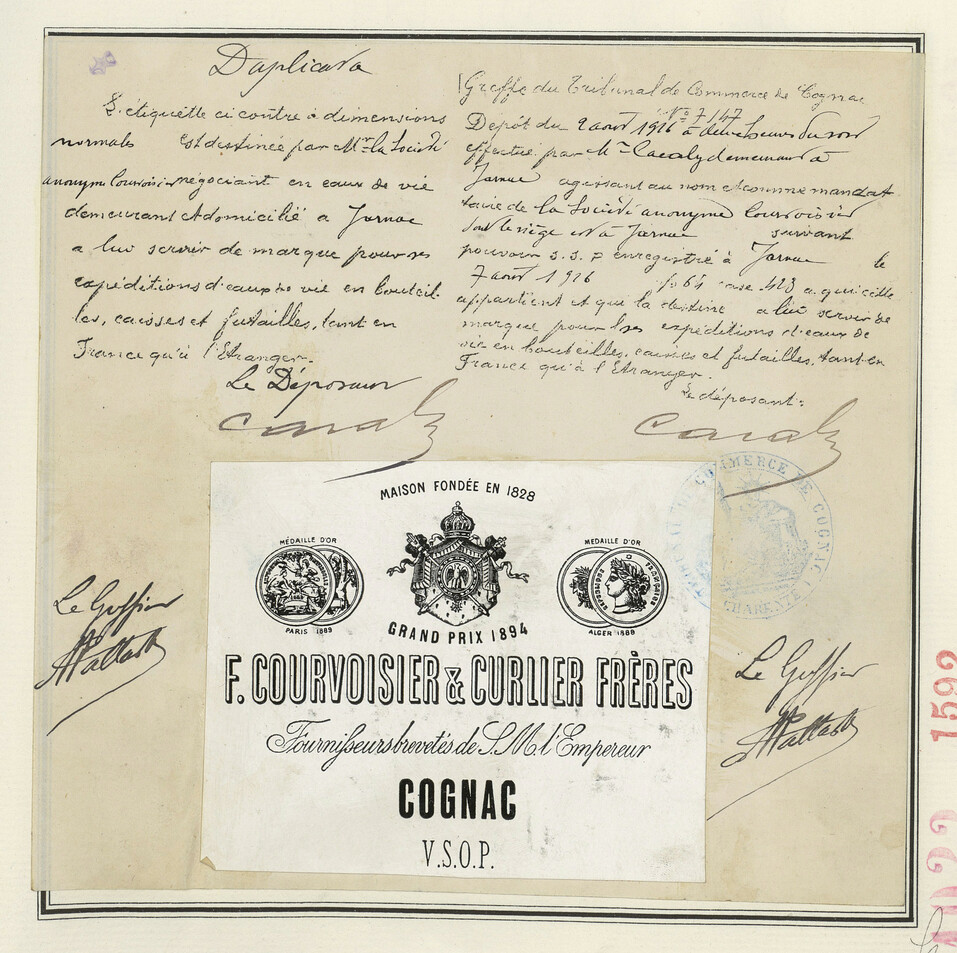 Duplicata
L'étiquette ci contre à dimensions
normales est destinée par Mr la Société
anonyme Courvoisier négociant en eaux de vie
demeurant et domicilié à Jarnac
a lui servir de marque pour ses
expéditions d'eaux de vie en bouteil-
les, caisses et futailles, tant en
France qu'à l'Etranger.
Le Déposant
Greffe du Tribunal de Commerce de Cognac
No 7147
Dépôt du 9 aout 1926 à deux heures du soir
effectué par Mr demeurant à
Jarnac agissant au nom et comme mandat
taire de la Société anonyme Courvoisier
dont le siège est à Jarnac suivant
pouvoir s.s.p enregistré à Jarnac le
7 aout 1926 fo 64 case 423 a qui elle
appartient et qui la destine a lui servir de
marque pour ses expéditions d'eaux de
vie en bouteilles, caisses et futailles, tant en
France qu'à l'Etranger.
Le déposant:
TRIBUNAL DE COMMERCE DE COGNAC
CHARENTE
MAISON FONDÉE EN 1828
MÉDAILLE D'OR
PARIS 1889
GRAND PRIX 1894
MEDAILLE D'OR
ALGER 1888
F. COURVOISIER & CURLIER FRÈRES
Fournisseurs brevetés de S. M. l'Empereur
COGNAC
V.S.O.P.
Le Greffier
Le Greffier
1592